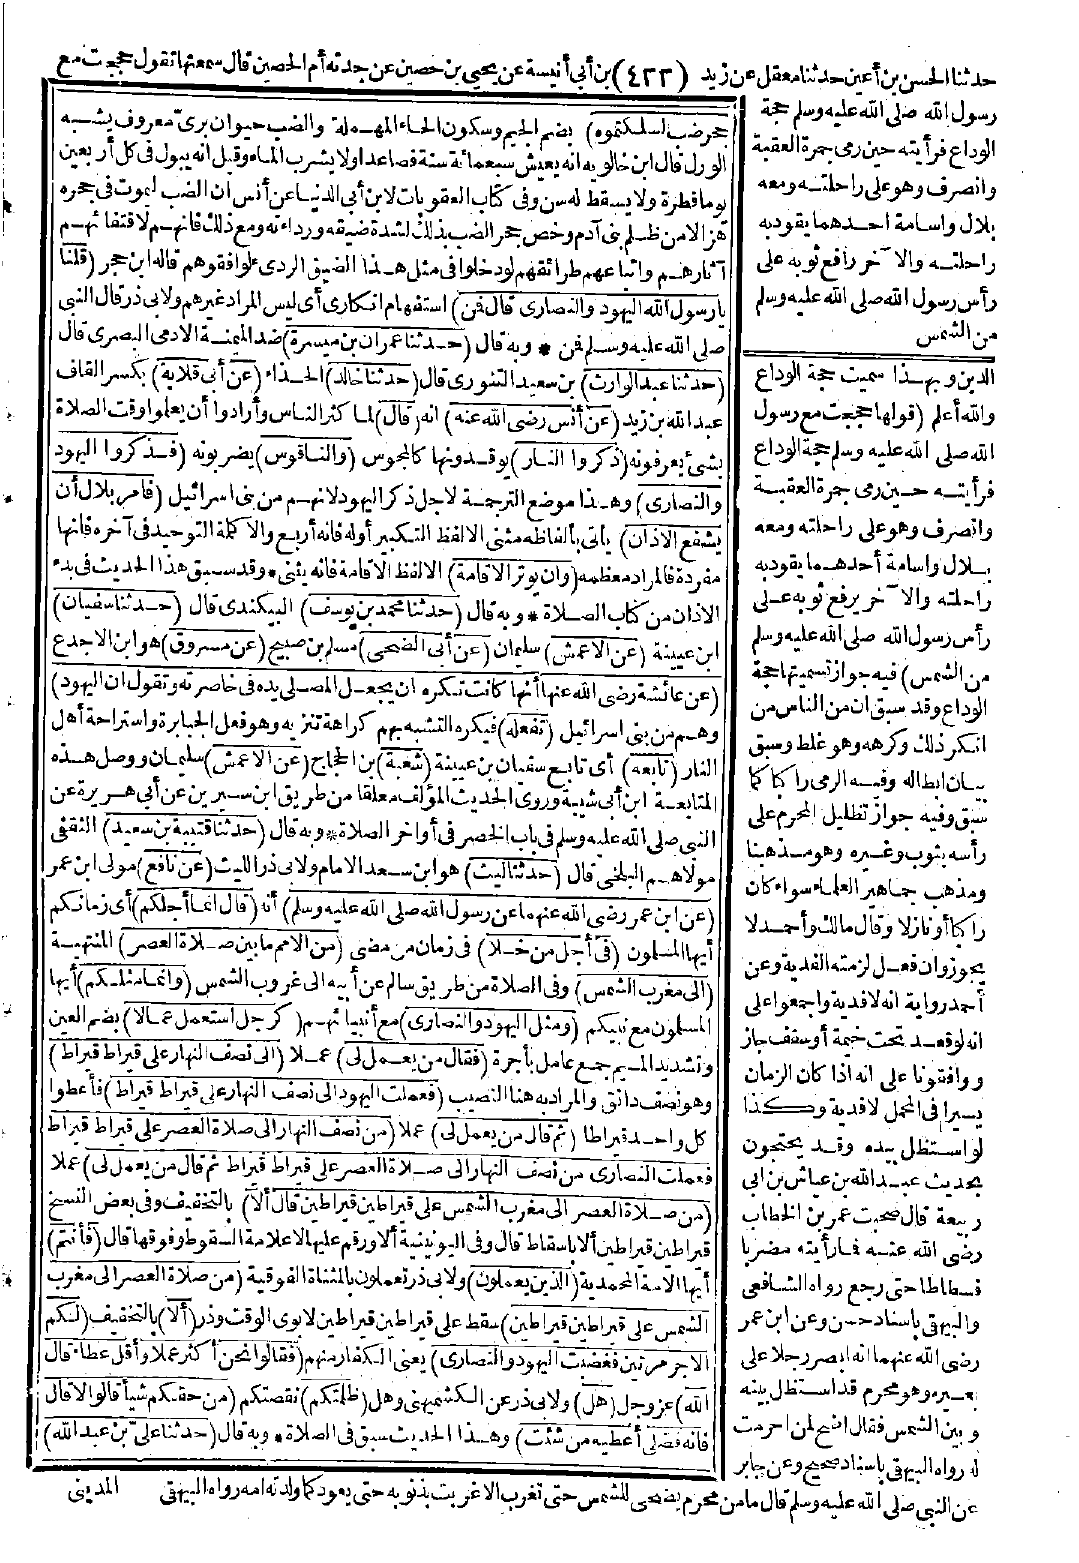 حدثنا الحسن بن أعين حدثنا معقل عن زيد (٤٢٣) بن أبي أنيسة عن يحيى بن حصين عن جدته أم الحصين قال سمعتها تقول حججت مع
رسول الله صلى الله عليه وسلم حجة
الوداع فرأيته حين رمى جمرة العقبة
وانصرف وهو على راحلته ومعه
بلال وأسامة أحدهما يقود به
راحلته والآخر رافع ثوبه على
رأس رسول الله صلى الله عليه وسلم
من الشمس
الدين وبهذا سميت حجة الوداع
والله أعلم (قولها حججت مع رسول
الله صلى الله عليه وسلم حجة الوداع
فرأيته حين رمى جمرة العقبة
وانصرف وهو على راحلته ومعه
بلال وأسامة أحدهما يقود به
راحلته والآخر يرفع ثوبه على
رأس رسول الله صلى الله عليه وسلم
من الشمس) فيه جواز تسميتها حجة
الوداع وقد سبق ان من الناس من
انكر ذلك وكرهه وهو غلط وسبق
بيان ابطاله وفيه الرمي راكبا كما
سبق وفيه جواز تظليل المحرم على
رأسه بثوب وغيره وهو مذهبنا
ومذهب جماهير العلماء سواء كان
راكبا أو نازلا وقال مالك وأحمد لا
يجوز وان فعل لزمته الفدية وعن
أحمد رواية انه لا فدية واجمعوا على
انه لو قعد تحت خيمة أو سقف جاز
ووافقونا على انه اذا كان الزمان
يسيرا في المحمل لا فدية وكذا
لو استظل بيده وقد يحتجون
بحديث عبد الله بن عياش بن أبي
ربيعة قال صحبت عمر بن الخطاب
رضى الله عنه فما رأيته مضربا
فسطاطا حتى رجع رواه الشافعي
والبيهقي باسناد حسن وعن ابن عمر
رضى الله عنهما انه ابصر رجلا على
بعيره وهو محرم قد استظل بينه
وبين الشمس فقال اضح لمن احرمت
له رواه البيهقي باسناد صحيح وعن جابر
عن النبي صلى الله عليه وسلم قال ما من محرم يضحى للشمس حتى تغرب الا غربت بذنوبه حتى يعود كما ولدته امه رواه البيهقي
جحر ضب لسلكتموه) بضم الجيم وسكون الحاء المهملة والضب حيوان بري معروف يشبه
الورل قال ابن خالويه انه يعيش سبعمائة سنة فصاعدا ولا يشرب الماء وقيل انه يبول في كل أربعين
يوما قطرة ولا يسقط له سن وفي كتاب العقوبات لابن أبي الدنيا عن أنس ان الضب ليموت في جحره
هزلا من ظلم بني آدم وخص جحر الضب بذلك لشدة ضيقه ورداءته ومع ذلك فانهم لاقتفائهم
آثارهم واتباعهم طرائقهم لو دخلوا في مثل هذا الضيق الردىء لوافقوهم قاله ابن حجر (قلنا
يا رسول الله اليهود والنصارى قال فمن) استفهام انكارى أي ليس المراد غيرهم ولابي ذر قال النبي
صلى الله عليه وسلم فمن * وبه قال (حدثنا عمران بن ميسرة) ضد الميمنة الادمى البصرى قال
(حدثنا عبد الوارث) بن سعيد التنورى قال (حدثنا خالد) الحذاء (عن أبي قلابة) بكسر القاف
عبد الله بن زيد (عن أنس رضى الله عنه) انه (قال) لما كثر الناس وأرادوا أن يعلموا وقت الصلاة
بشئ يعرفونه (ذكروا النار) يوقدونها كالمجوس (والناقوس) يضربونه (فذكروا اليهود
والنصارى) وهذا موضع الترجمة لاجل ذكر اليهود لانهم من بني اسرائيل (فامر بلال أن
يشفع الاذان) يأتي بألفاظه مثنى الا لفظ التكبير أوله فانه أربع والا كلمة التوحيد في آخره فانها
مفردة فالمراد معظمه (وان يوتر الاقامة) الا لفظ الاقامة فانه يثنى * وقد سبق هذا الحديث في بدء
الاذان من كتاب الصلاة * وبه قال (حدثنا محمد بن يوسف) البيكندى قال (حدثنا سفيان)
ابن عيينة (عن الاعمش) سليمان (عن أبي الضحى) مسلم بن صبيح (عن مسروق) هو ابن الاجدع
(عن عائشة رضى الله عنها أنها كانت تكره ان يجعل المصلى يده في خاصرته وتقول ان اليهود)
وهم من بني اسرائيل (تفعله) فيكره التشبه بهم كراهة تنزيه وهو فعل الجبابرة واستراحة أهل
النار (تابعه) أي تابع سفيان بن عيينة (شعبة) بن الحجاج (عن الاعمش) سليمان ووصل هذه
المتابعة ابن أبي شيبة وروى الحديث المؤلف معلقا من طريق ابن سيرين عن أبي هريرة عن
النبي صلى الله عليه وسلم في باب الخصر في أواخر الصلاة * وبه قال (حدثنا قتيبة بن سعيد) الثقفي
مولاهم البلخى قال (حدثنا ليث) هو ابن سعد الامام ولابي ذر الليث (عن نافع) مولى ابن عمر
(عن ابن عمر رضى الله عنهما عن رسول الله صلى الله عليه وسلم) أنه (قال انما أجلكم) أي زمانكم
أيها المسلمون (في أجل من خلا) في زمان من مضى (من الامم ما بين صلاة العصر) المنتهية
(الى مغرب الشمس) وفي الصلاة من طريق سالم عن أبيه الى غروب الشمس (وانما مثلكم) أيها
المسلمون مع نبيكم (ومثل اليهود والنصارى) مع أنبيائهم (كرجل استعمل عمالا) بضم العين
وتشديد الميم جمع عامل بأجرة (فقال من يعمل لي) عملا (الى نصف النهار على قيراط قيراط)
وهو نصف دانق والمراد به هنا النصيب (فعملت اليهود الى نصف النهار على قيراط قيراط) فأعطوا
كل واحد قيراطا (ثم قال من يعمل لي) عملا (من نصف النهار الى صلاة العصر على قيراط قيراط
فعملت النصارى من نصف النهار الى صلاة العصر على قيراط قيراط ثم قال من يعمل لي) عملا
(من صلاة العصر الى مغرب الشمس على قيراطين قيراطين قال ألا) بالتخفيف وفي بعض النسخ
قيراطين قيراطين ألا باسقاط قال وفي اليونينية ألا ورقم عليها علامة السقوط وفوقها قال (فأنتم)
أيها الامة المحمدية (الذين يعملون) ولابي ذر تعملون بالمثناة الفوقية (من صلاة العصر الى مغرب
الشمس على قيراطين قيراطين) سقط على قيراطين قيراطين لابوى الوقت وذر (ألا) بالتخفيف (لكم
الاجر مرتين فغضبت اليهود والنصارى) يعني الكفار منهم (فقالوا نحن أكثر عملا وأقل عطاء قال
الله) عز وجل (هل) ولابي ذر عن الكشميهنى وهل (ظلمتكم) نقصتكم (من حقكم شيأ قالوا لا قال
فانه فضلى أعطيه من شئت) وهذا الحديث سبق في الصلاة * وبه قال (حدثنا علي بن عبد الله)
المديني